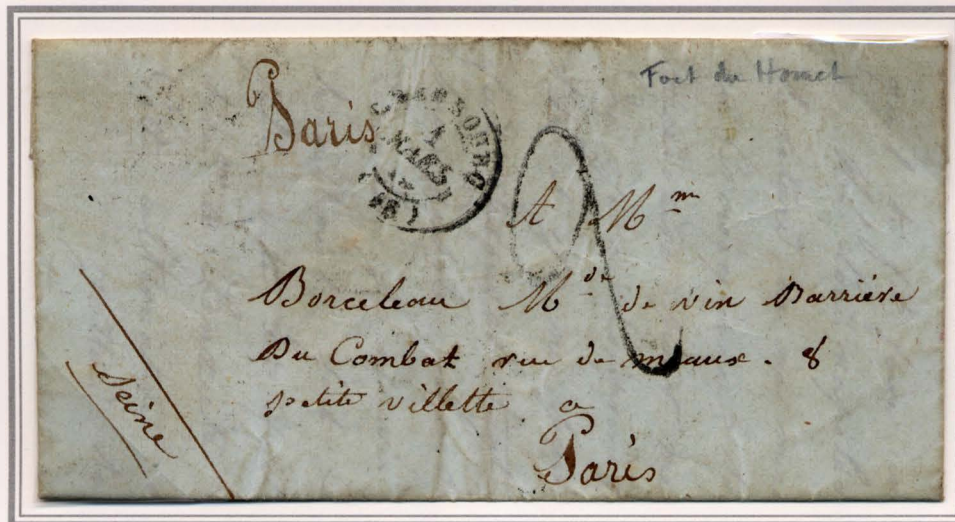 Fort du Homet
Paris
CHERBOURG
1
MARS
A Mm
2
Borceleau Mde de vin Barrière
Du Combat rue de meaux. 8
petite villette a
Paris
Seine